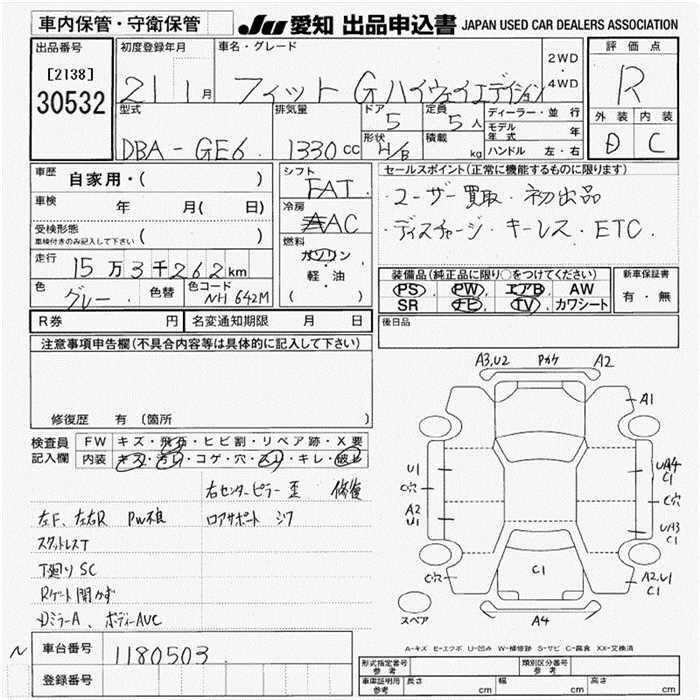 車内保管・守衛保管
JU 愛知 出品申込書 JAPAN USED CAR DEALERS ASSOCIATION
出品番号
[2138]
30532
初度登録年月
21 1月
車名・グレード
フィット Gハイウェイエディション
2WD
・
4WD
評価点
R
外装 内装
D C
型式
DBA-GE6
排気量
1330cc
ドア
5
定員
5人
形状
H/B
積載
kg
ディーラー・並行
モデル年式 年
ハンドル 左・右
車歴 自家用・( )
車検 年 月( 日)
受検形態
車検付きのみ記入して下さい ( )
走行 15万3千262km
色 グレー
色替
色コード NH642M
シフト
FAT
冷房
AAC
燃料
ガソリン
・
軽・油
( )
セールスポイント(正常に機能するものに限ります)
・ユーザー買取・初出品
・ディスチャージ・キーレス・ETC.
装備品(純正品に限り○をつけてください)
PS PW エアB AW
SR ナビ TV カワシート
新車保証書
有・無
R券 円 名変通知期限 月 日
後日品
注意事項申告欄(不具合内容等は具体的に記入して下さい)
修復歴 有 (箇所
検査員
記入欄
FW キズ・飛石・ヒビ割・リペア跡・X要
内装 キズ・汚レ・コゲ・穴・スレ・キレ・破レ
右センターピラー歪 修復
左F、左右R PW不良 ロアサポート シワ
スタットレスT
下廻りSC
Rゲート開かず
Dミラー A、ボディーAUC
A3,U2 Pカケ A2
A1
U1
C穴
A2
U1
C穴
UA4
C1
C穴
UA3
C1
A2,U1
C1
C1
A4
スペア
A-キズ E-エクボ U-凹み W-補修跡 S-サビ C-腐食 XX-交換済
N
車台番号 1180503
登録番号
形式指定番号
参考
類別区分番号
参考
車庫証明用
参考
長さ cm 幅 cm 高さ cm